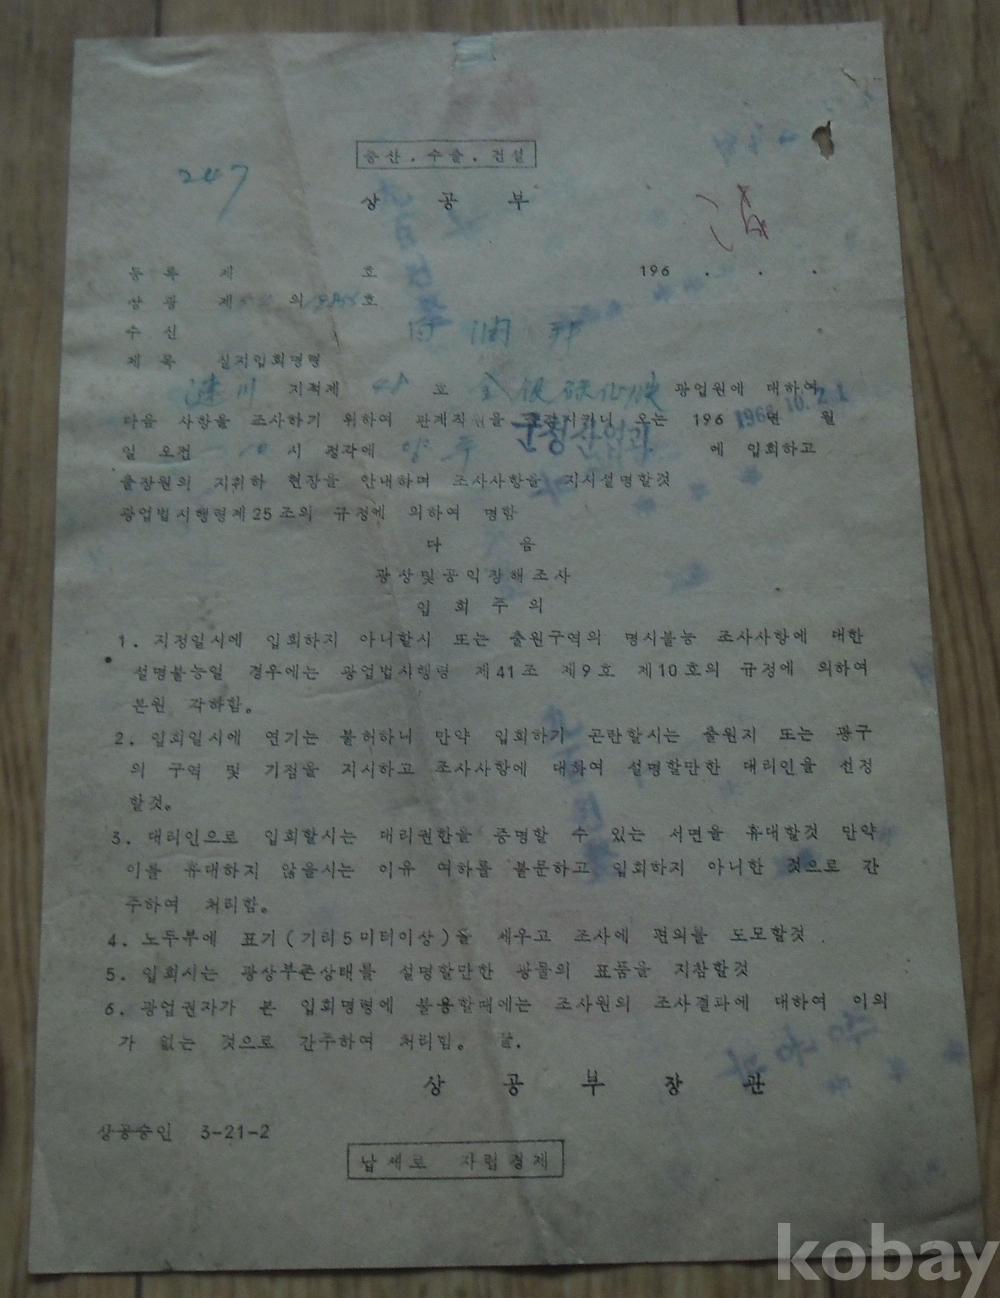 증산.수출.건설
247
상 공 부
등 록 제 호 196 . . .
상 광 제 의 호
수 신
제 목 실지입회명령
漣川 지적제 48 호 金銀 광업원에 대하여
다음 사항을 조사하기 위하여 관계직원을 출장시키니 오는 196 년 월
1968.10.21
일 오전 10 시 정각에 양주 군청산업과 에 입회하고
출장원의 지휘하 현장을 안내하며 조사사항을 지시설명할것
광업법시행령제25조의 규정에 의하여 명함
다 음
광상및공익장해조사
입 회 주 의
1. 지정일시에 입회하지 아니할시 또는 출원구역의 명시불능 조사사항에 대한
설명불능일 경우에는 광업법시행령 제41조 제9호 제10호의 규정에 의하여
본원 각하함。
2. 입회일시에 연기는 불허하니 만약 입회하기 곤란할시는 출원지 또는 광구
의 구역 및 기점을 지시하고 조사사항에 대하여 설명할만한 대리인을 선정
할것。
3. 대리인으로 입회할시는 대리권한을 증명할 수 있는 서면을 휴대할것 만약
이를 휴대하지 않을시는 이유 여하를 불문하고 입회하지 아니한 것으로 간
주하여 처리함。
4. 노두부에 표기(기리5미터이상)을 세우고 조사에 편의를 도모할것
5. 입회시는 광상부존상태를 설명할만한 광물의 표품을 지참할것
6. 광업권자가 본 입회명령에 불응할때에는 조사원의 조사결과에 대하여 이의
가 없는 것으로 간주하여 처리함。 끝.
상 공 부 장 관
상공승인 3-21-2
납세로 자립경제
kobay